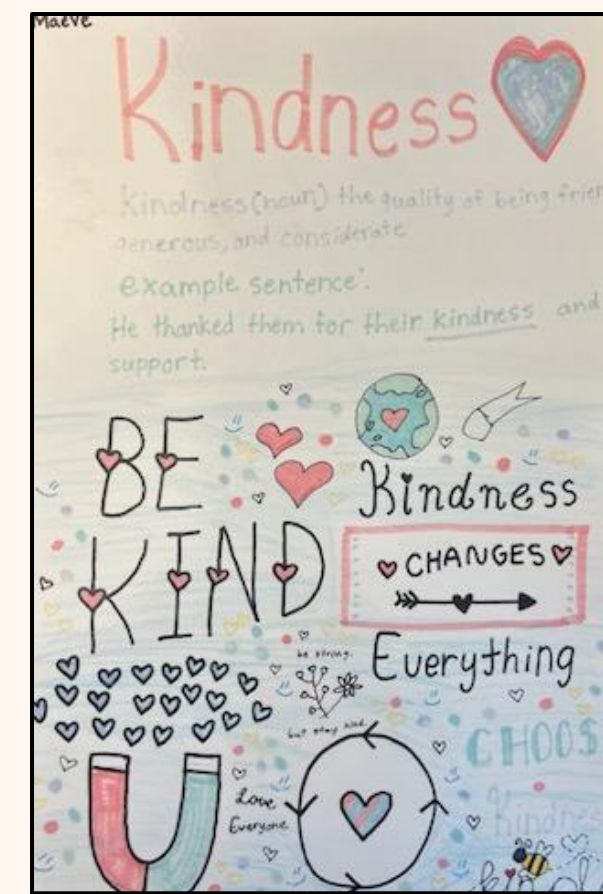 Maeve
Kindness
Kindness (noun) the quality of being frien
generous, and considerate
example sentence:
He thanked them for their kindness and
support.
BE
KIND
Kindness
CHANGES
Everything
be strong.
but stay kind.
Love
Everyone
CHOOS
Kindness